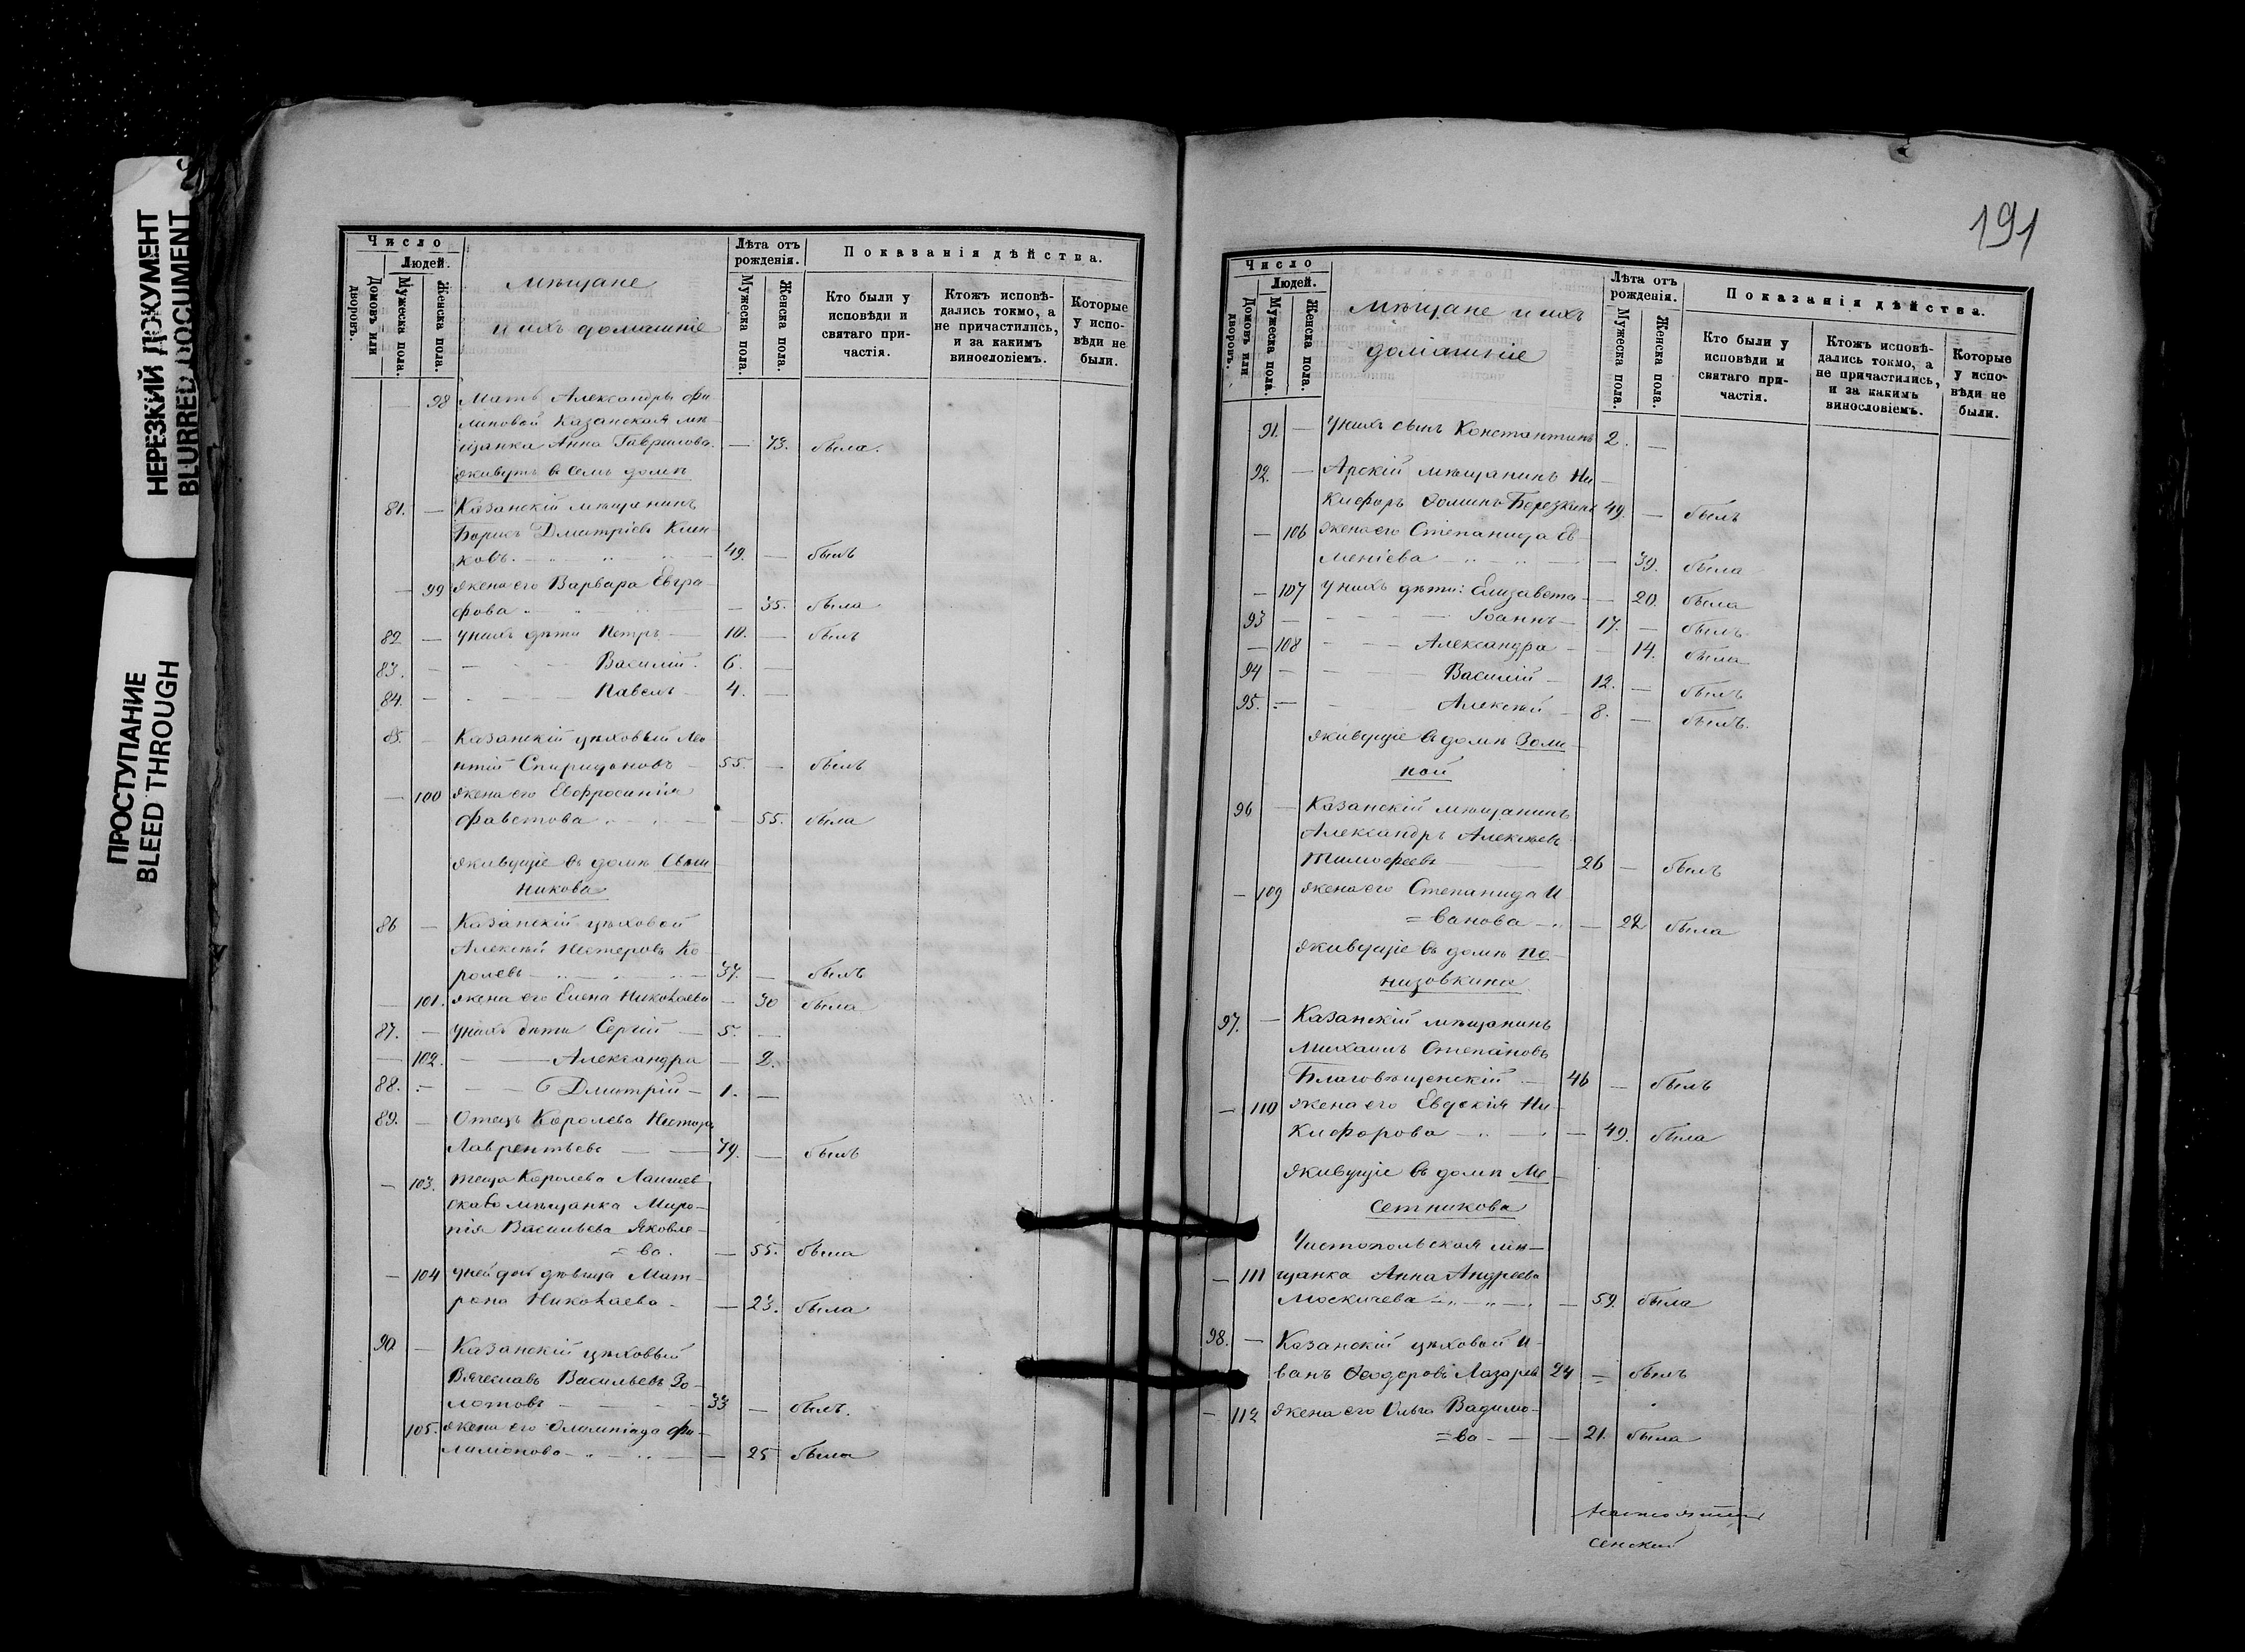 НЕРЕЗКИЙ ДОКУМЕНТ
BLURRED DOCUMENT
ПРОСТУПАНИЕ
BLEED THROUGH
Число
Людей.
Домовъ или дворовъ.
Мужеска пола.
Женска пола.
мѣщане
и ихъ домашніе
Лѣта отъ рожденія.
Мужеска пола.
Женска пола.
Показанія дѣйства.
Кто были у исповѣди и святаго причастія.
Ктожъ исповѣдались токмо, а не причастились, и за какимъ винословіемъ.
Которые у исповѣди не были.
— 98 Мать Александры Фи
липовой Казанская мѣ
щанка Анна Гаврилова. — 73. была.
живутъ въ семъ домѣ
81. — Казанскій мѣщанинъ
Борисъ Дмитріевъ Клин
ковъ 49. — былъ
— 99 жена его Варвара Евгра
фова — 35. была
82 — у нихъ дѣти Петръ — 10. — былъ
83. — Василій. 6. —
84. — Павелъ 4. —
85. — Казанскій цѣховый Лео
нтій Спиридоновъ 55. — былъ
— 100 жена его Евфросинія
Фавстова — 55. была
живущіе въ домѣ Свѣш
никова
86 — Казанскій цѣховой
Алексѣй Нестеровъ Ко
ролевъ 37. — былъ
— 101. жена его Елена Николаева — 30 была
87. — у нихъ дѣти Сергій — 5. —
— 102. Александра — 2.
88. — Дмитрій — 1. —
89. — Отецъ Королева Несторъ
Лаврентьевъ 79. — былъ
— 103. теща Королева Лаишев
скаво мѣщанка Миро-
пія Васильева Яковле-
= ва. — 55. была
— 104 у ней дочь дѣвица Мат-
рона Николаева — 23. была
90 — Казанскій цѣховый
Вячеславъ Васильевъ Зо-
лотовъ 33 — былъ.
105. жена его Олимпіада Фи-
лимонова — 25 была
191
Число
Людей.
Домовъ или дворовъ.
Мужеска пола.
Женска пола.
Мѣщане и ихъ
домашніе
Лѣта отъ рожденія.
Мужеска пола.
Женска пола.
Показанія дѣйства.
Кто были у исповѣди и святаго причастія.
Ктожъ исповѣдались токмо, а не причастились, и за какимъ винословіемъ.
Которые у исповѣди не были.
91. — У нихъ сынъ Константинъ 2. —
92. — Арскій мѣщанинъ Ни
кифоръ Ѳоминъ Березкинъ 49. — былъ
— 106 жена его Степанида Ев-
меніева — 39. была
— 107 У нихъ дѣти: Елизавета — 20. была
93 — Іоаннъ — 17. — былъ
— 108 Александра — 14. была
94 — Василій — 12. — былъ
95. — Алексѣй — 8. — былъ.
живущіе въ домѣ Золи
ной
96 — Казанскій мѣщанинъ
Александръ Алексѣевъ
Тимофеевъ 26 — былъ
— 109 жена его Степанида И
= ванова — 22 была
живущіе въ домѣ По
низовкина
97. — Казанскій мѣщанинъ
Михаилъ Степановъ
Благовѣщенскій 46 — былъ
— 110 жена его Евдокія Ни-
кифорова — 49. была
живущіе въ домѣ Ме
сетникова
Чистопольская мѣ—
— 111 щанка Анна Андреева
Москичева — 59. была
98. — Казанскій цѣховой И-
ванъ Ѳеодоровъ Лазаревъ 24 = былъ
— 112 жена его Ольга Вадимо-
= ва — 21. была